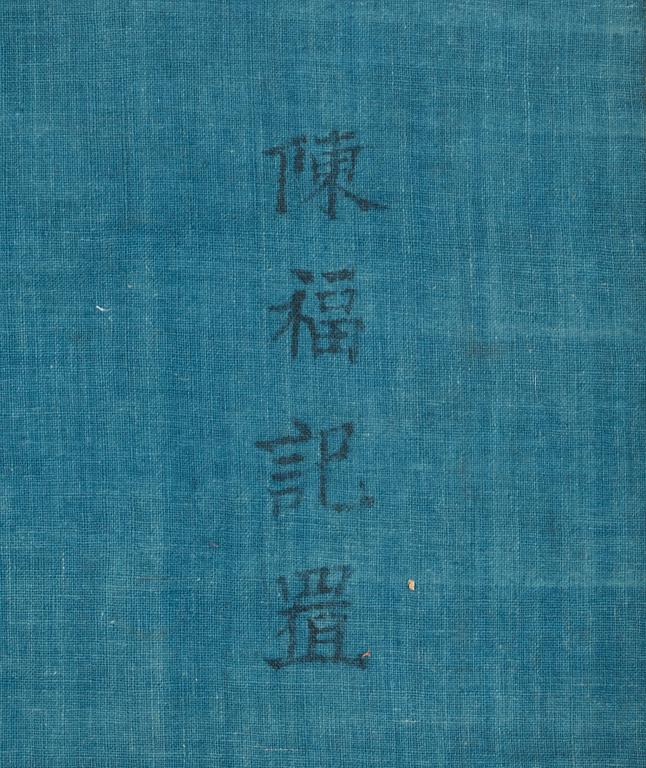 陳福記置